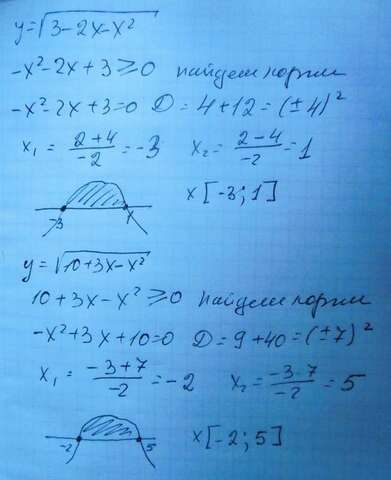 y=√(3-2x-x²)
-x²-2x+3≥0 найдем корни
-x²-2x+3=0 D=4+12=(±4)²
x₁=(2+4)/(-2)=-3 x₂=(2-4)/(-2)=1
-3 1 x[-3;1]
y=√(10+3x-x²)
10+3x-x²≥0 найдем корни
-x²+3x+10=0 D=9+40=(±7)²
x₁=(-3+7)/(-2)=-2 x₂=(-3-7)/(-2)=5
-2 5 x[-2;5]